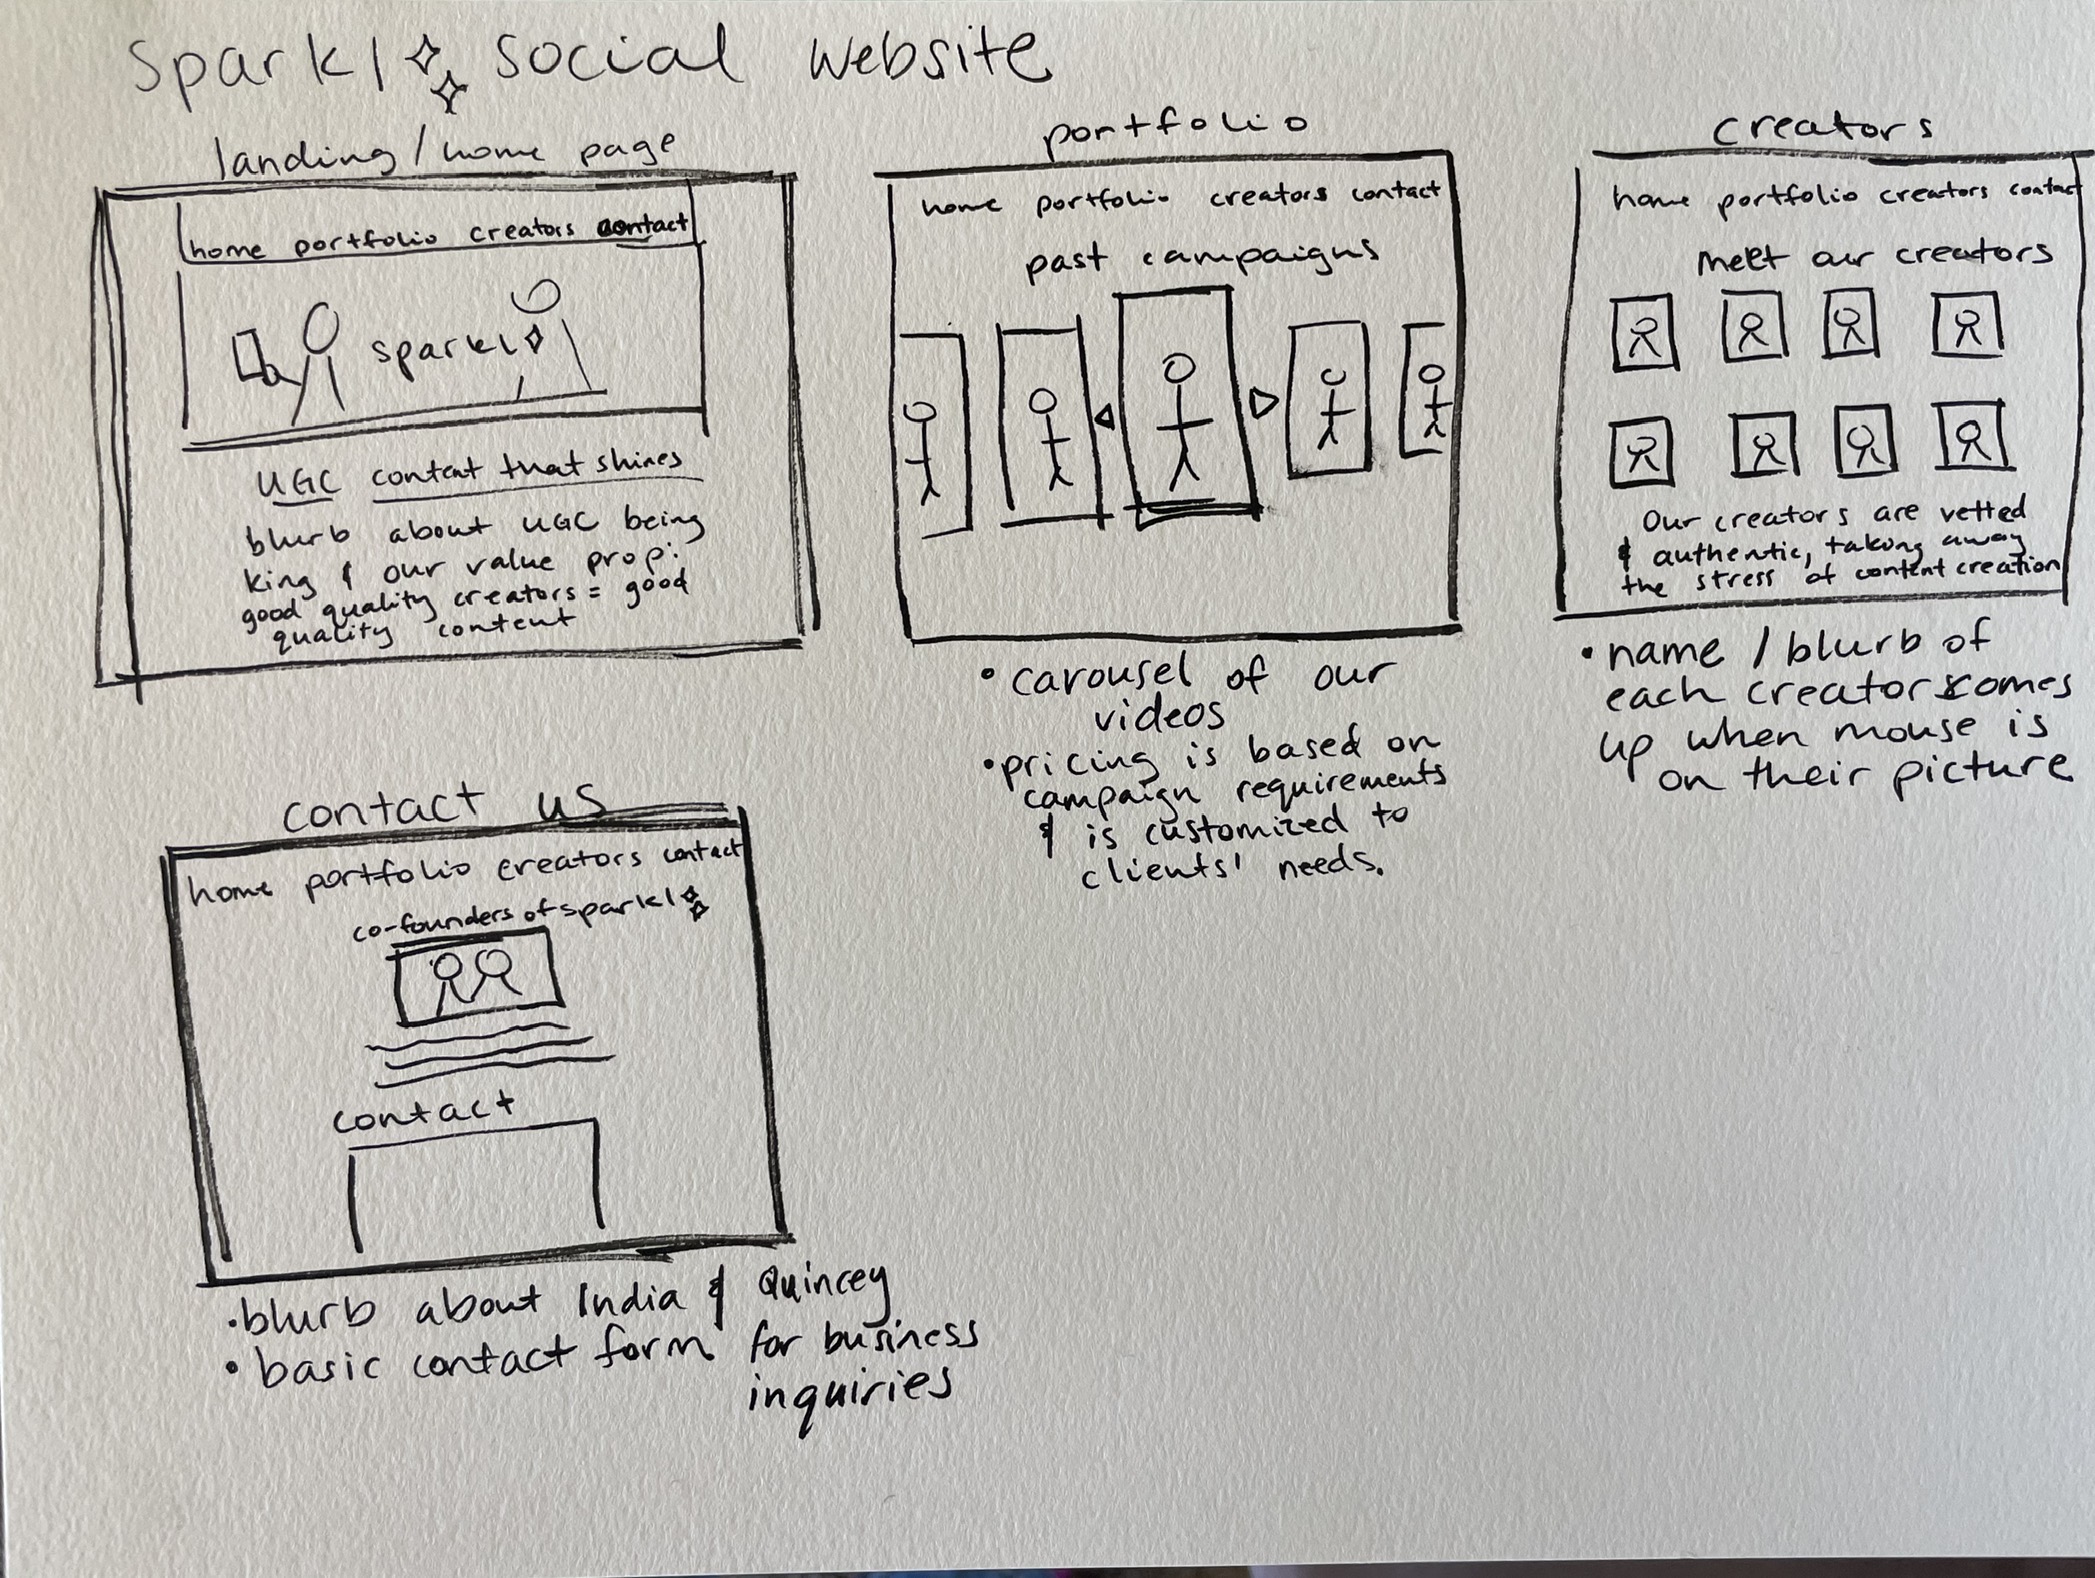 sparkl✧✧ social website
landing / home page
home portfolio creators contact
sparkl✧
UGC content that shines
blurb about UGC being
king & our value prop:
good quality creators = good
quality content
portfolio
home portfolio creators contact
past campaigns
• carousel of our
videos
• pricing is based on
campaign requirements
& is customized to
clients' needs.
creators
home portfolio creators contact
meet our creators
Our creators are vetted
& authentic, taking away
the stress of content creation
• name / blurb of
each creator comes
up when mouse is
on their picture
contact us
home portfolio creators contact
co-founders of sparkl✧✧
contact
• blurb about India & Quincey
• basic contact form for business
inquiries